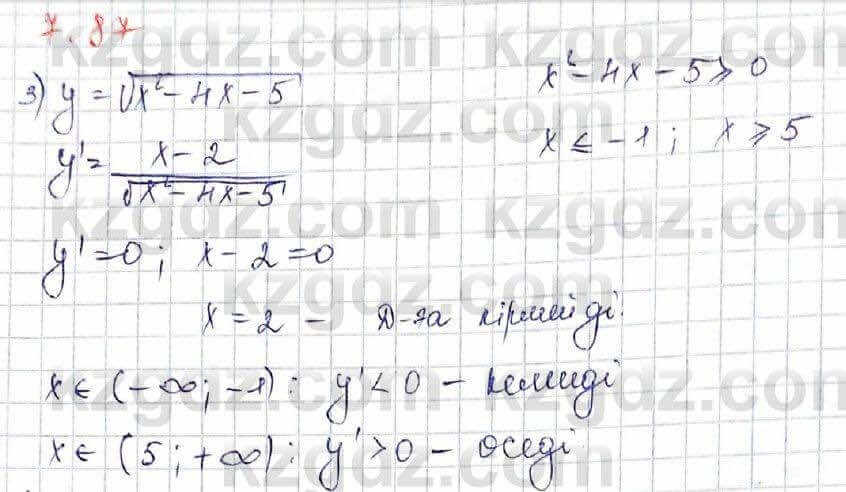 7.87
3) y = √x²-4x-5
x²-4x-5≥0
y' = x-2 / √x²-4x-5
x ≤ -1; x ≥ 5
y'=0; x-2=0
x=2 - Д-ға кірмейді.
x∈(-∞;-1): y'<0 - кемиді
x∈(5;+∞): y'>0 - өседі
kzgdz.com
kzgdz.com
kzgdz.com
kzgdz.com
kzgdz.com
kzgdz.com
kzgdz.com
kzgdz.com